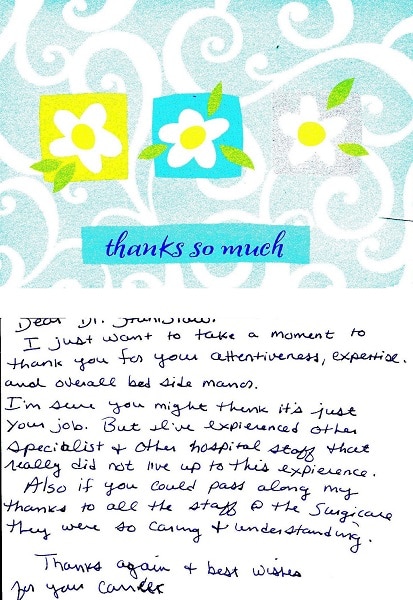 thanks so much
Dear Dr. Stanislaw.
I just want to take a moment to
thank you for your attentiveness, expertise.
and overall bed side manor.
I'm sure you might think it's just
your job. But I've expierenced other
specialist & other hospital staff that
really did not live up to this expierence.
Also if you could pass along my
thanks to all the staff @ the Surgicare
they were so caring & understanding.
Thanks again & best wishes
for your career